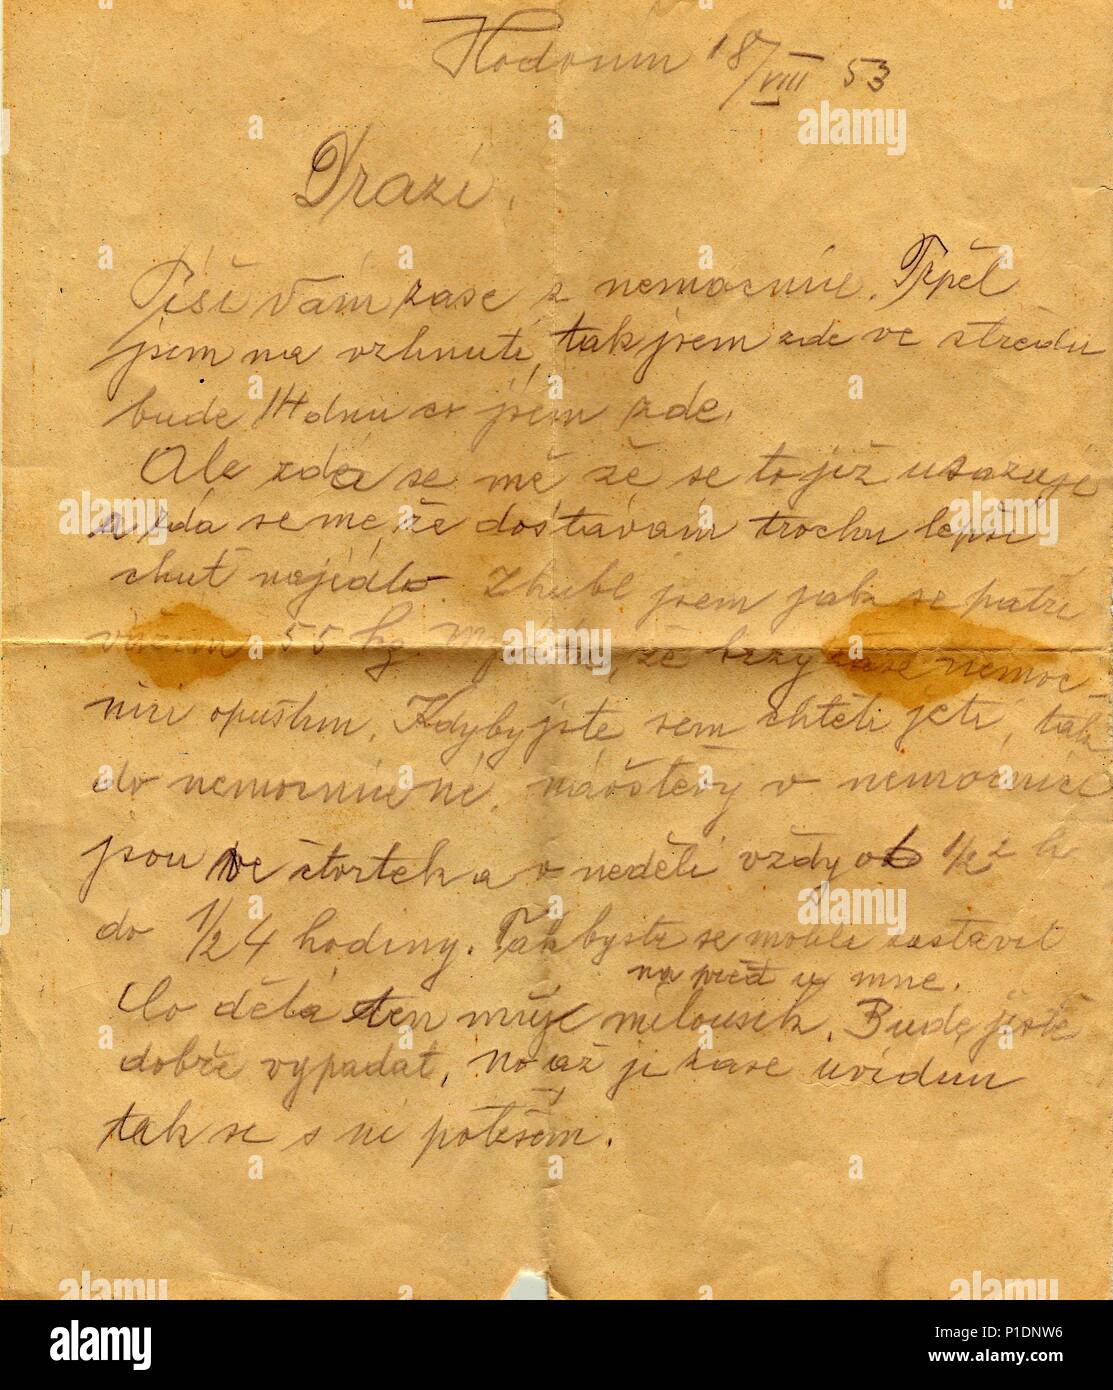 Hodonín 18/VIII 53
Drazí,
Píši Vám zase z nemocnice. Trpěl
jsem na vzhnutí, tak jsem zde ve středu
bude 14 dnu co jsem zde.
Ale zdá se mě že se to již usazuje
a zdá se mě, že dostávám trochu lepši
chuť na jídlo. Zhubl jsem jak se patří
vážím 55 kg. Myslím, že brzy zase nemoc-
nici opustim. Kdyby jste sem chtěli jeti, tak
do nemocnice né, návštěvy v nemocnici
jsou ve čtvrtek a v neděli vždy od 1/2 2 h
do 1/2 4 hodiny. Tak byste se mohli zastavit
napřed u mne.
Co dělá ten můj milousek. Bude jistě
dobře vypadat, no až ji zase uvidím
tak se s ní potěším.
a
alamy
P1DNW6
www.alamy.com